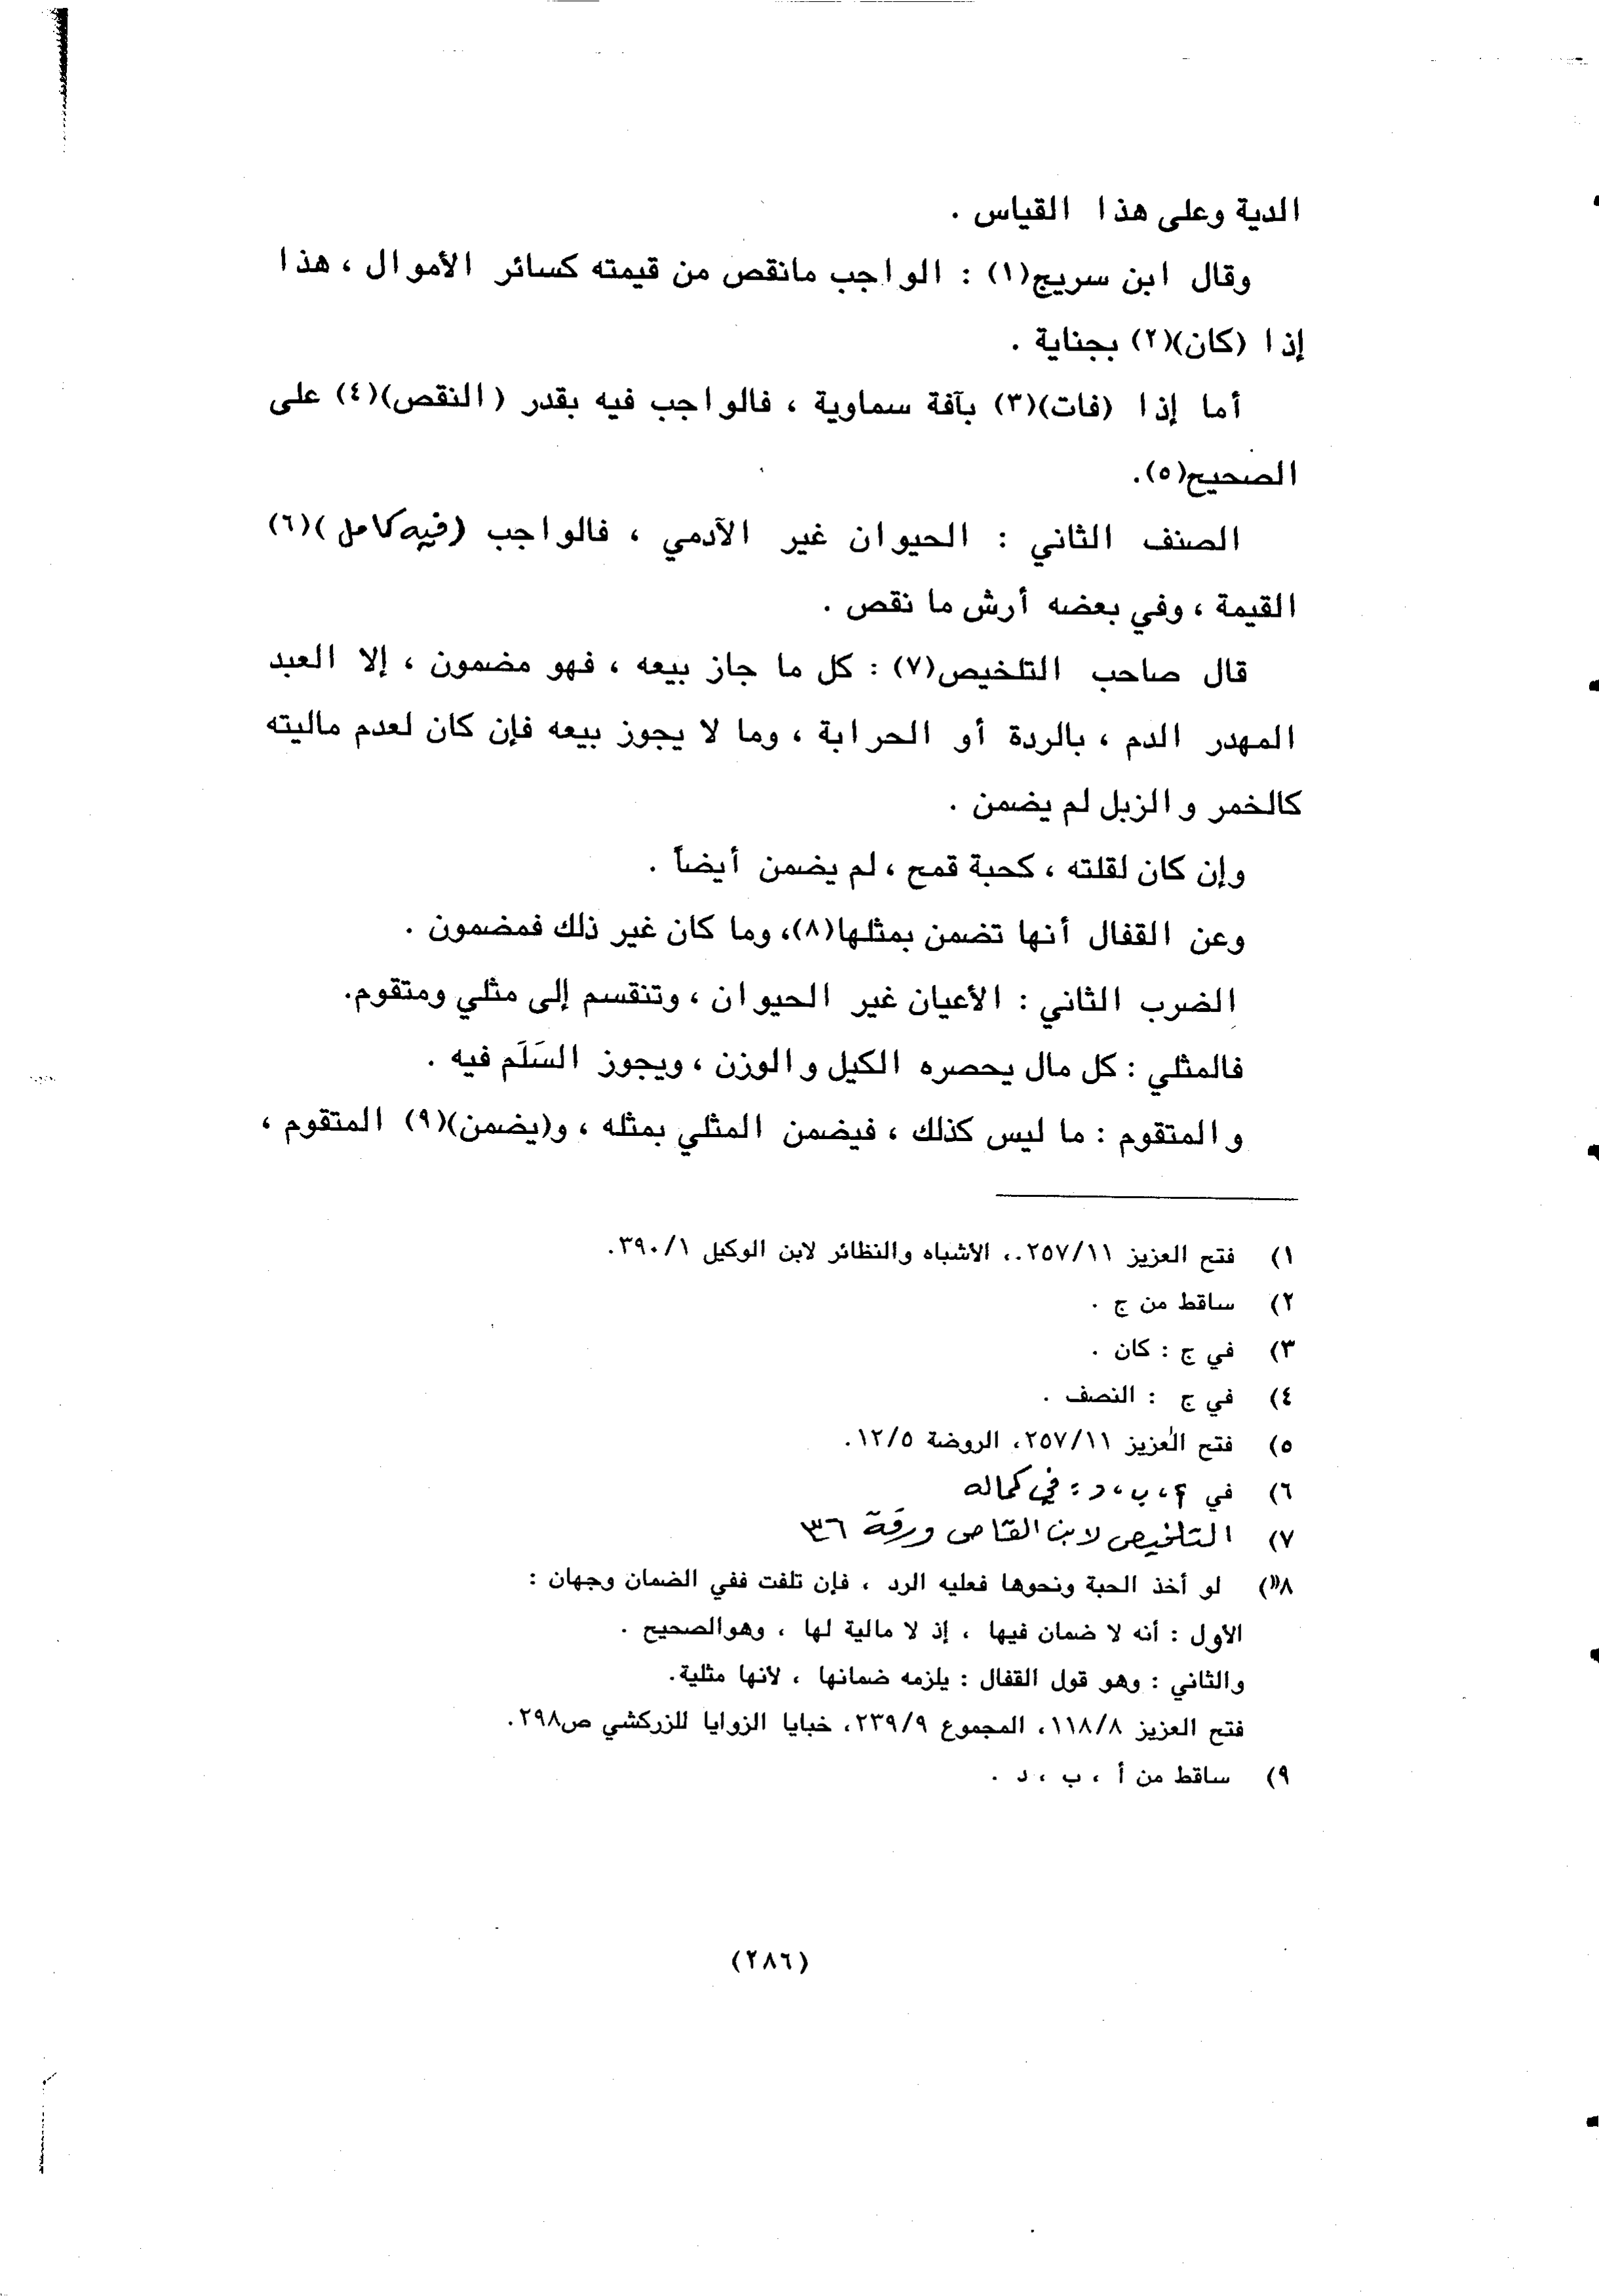 الدية وعلى هذا القياس .
وقال ابن سريج(١) : الواجب مانقص من قيمته كسائر الأموال ، هذا
إذا (كان)(٢) بجناية .
أما إذا (فات)(٣) بآفة سماوية ، فالواجب فيه بقدر (النقص)(٤) على
الصحيح(٥).
الصنف الثاني : الحيوان غير الآدمي ، فالواجب (فيه كامل)(٦)
القيمة ، وفي بعضه أرش ما نقص .
قال صاحب التلخيص(٧) : كل ما جاز بيعه ، فهو مضمون ، إلا العبد
المهدر الدم ، بالردة أو الحرابة ، وما لا يجوز بيعه فإن كان لعدم ماليته
كالخمر والزبل لم يضمن .
وإن كان لقلته ، كحبة قمح ، لم يضمن أيضاً .
وعن القفال أنها تضمن بمثلها(٨)، وما كان غير ذلك فمضمون .
الضرب الثاني : الأعيان غير الحيوان ، وتنقسم إلى مثلي ومتقوم.
فالمثلي : كل مال يحصره الكيل والوزن ، ويجوز السَلَم فيه .
والمتقوم : ما ليس كذلك ، فيضمن المثلي بمثله ، و(يضمن)(٩) المتقوم ،
١) فتح العزيز ٢٥٧/١١.، الأشباه والنظائر لابن الوكيل ٣٩٠/١.
٢) ساقط من ج .
٣) في ج : كان .
٤) في ج : النصف .
٥) فتح العزيز ٢٥٧/١١، الروضة ١٢/٥.
٦) في ، ب ، د : في كماله
٧) التلخيص لابن القاص ورقة ٣٦
٨) لو أخذ الحبة ونحوها فعليه الرد ، فإن تلفت ففي الضمان وجهان :
الأول : أنه لا ضمان فيها ، إذ لا مالية لها ، وهوالصحيح .
والثاني : وهو قول القفال : يلزمه ضمانها ، لأنها مثلية.
فتح العزيز ١١٨/٨، المجموع ٢٣٩/٩، خبايا الزوايا للزركشي ص٢٩٨.
٩) ساقط من أ ، ب ، د .
(٢٨٦)